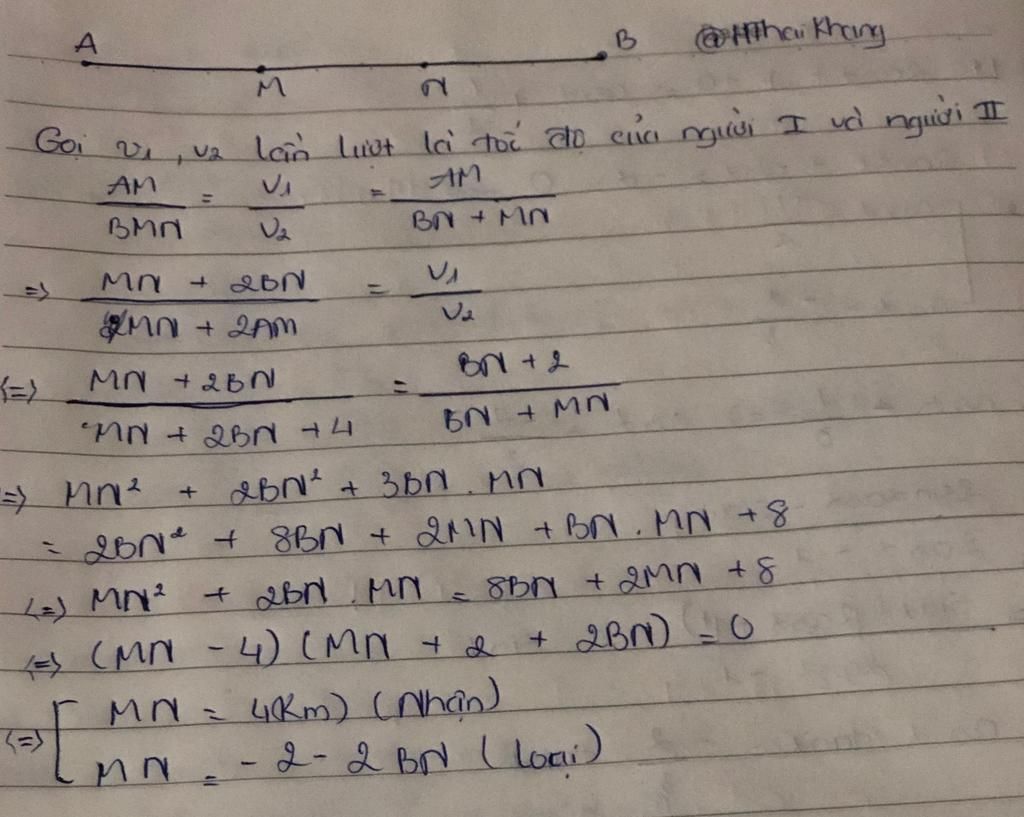 A B @HThai Khang
M N
Gọi v₁, v₂ lần lượt là tốc độ của người I và người II
AM/BMN = V₁/V₂ = AM/(BN + MN)
=> (MN + 2BN)/(MN + 2AM) = V₁/V₂
<=> (MN + 2BN)/(MN + 2BN + 4) = (BN + 2)/(BN + MN)
=> MN² + 2BN² + 3BN . MN
= 2BN² + 8BN + 2MN + BN . MN + 8
<=> MN² + 2BN . MN = 8BN + 2MN + 8
<=> (MN - 4) (MN + 2 + 2BN) = 0
<=> [ MN = 4(Km) (Nhận)
MN = - 2 - 2 BN (loại)